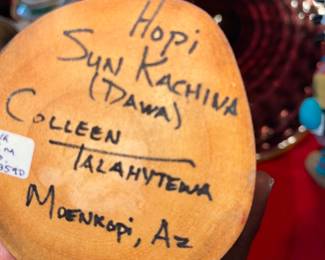 Hopi
Sun Kachina
(Dawa)
Colleen
Talahytewa
Moenkopi, Az